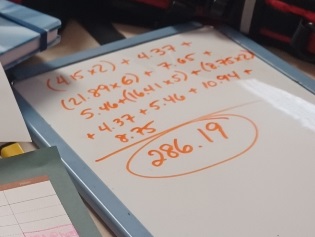 (4.15x2) + 4.37 +
(21.89x6) + 7.65 +
5.46+(16.41x5)+(2.75x2)
+ 4.37 + 5.46 + 10.94 +
8.75
286.19